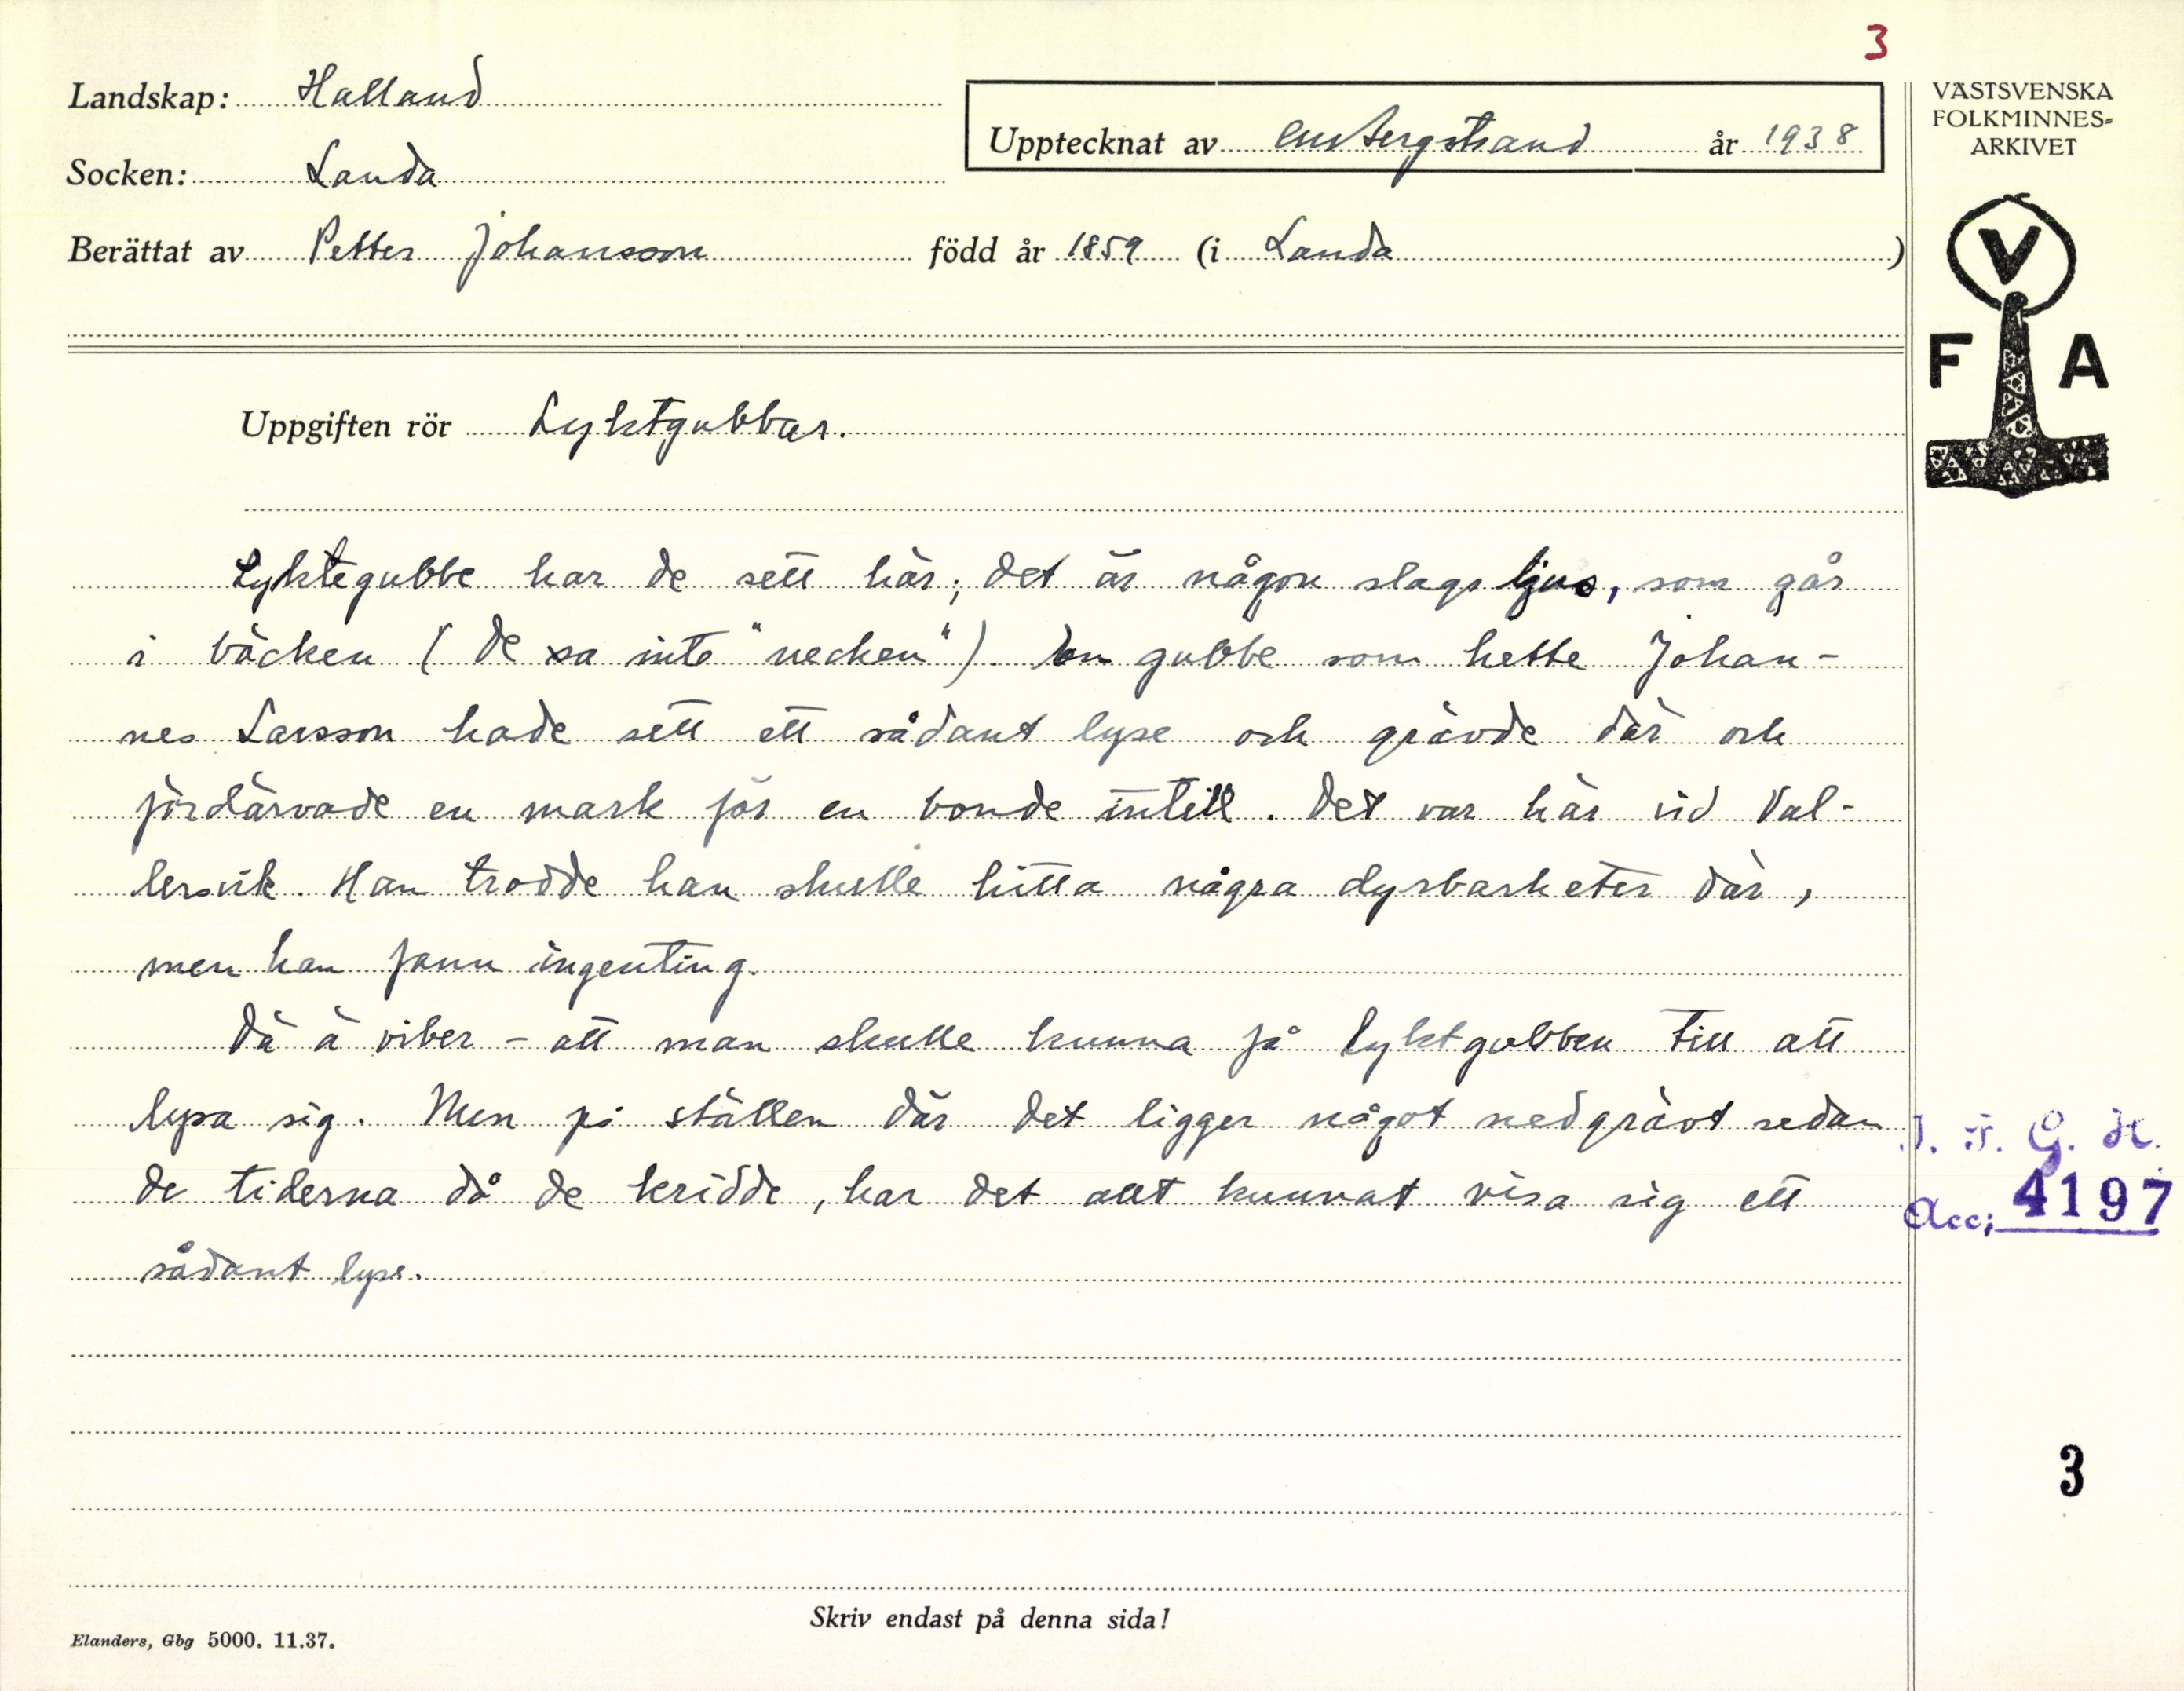 3
Landskap: Halland
Upptecknat av CM Bergstrand år 1938
Socken: Landa
Berättat av Petter Johansson född år 1859 (i Landa )
VÄSTSVENSKA
FOLKMINNES-
ARKIVET
V
F A
Uppgiften rör Lyktgubbar.
Lyktegubbe har de sett här; det är någon slags ljus, som går
i bäcken (de sa inte "necken"). En gubbe som hette Johan-
nes Larsson hade sett ett sådant lyse och grävde där och
fördärvade en mark för en bonde intill. Det var här vid Val-
lersvik. Han trodde han skulle hitta några dyrbarheter där,
men han fann ingenting.
Dä ä viber - att man skulle kunna få lyktgubben till att
lysa sig. Men på ställen där det ligger något nedgrävt sedan
de tiderna då de kridde, har det allt kunnat visa sig ett
sådant lyse.
I. F. G. H.
Acc; 4197
3
Skriv endast på denna sida!
Elanders, Gbg 5000. 11.37.